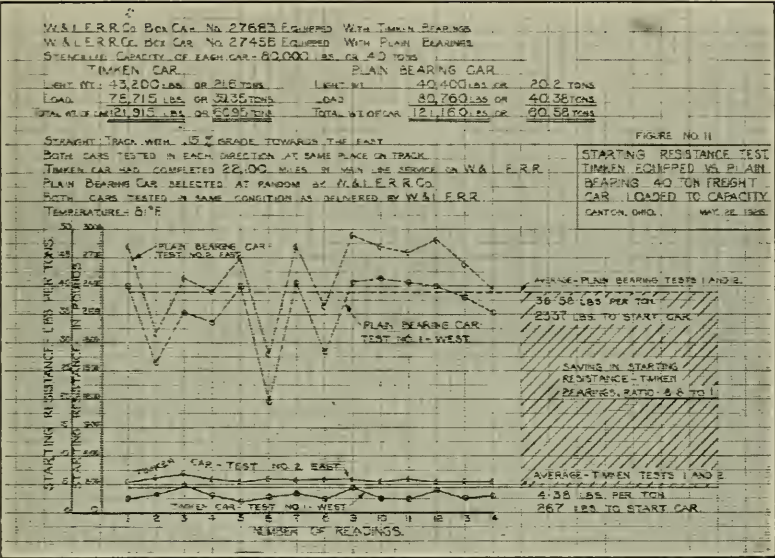 W. & L. E. R. R. Co. Box Car No. 27683 Equipped With Timken Bearings
W. & L. E. R. R. Co. Box Car No. 27456 Equipped With Plain Bearings
Stencilled Capacity of each car - 80,000 lbs. or 40 tons
TIMKEN CAR
Light Wt.: 43,200 lbs. or 21.6 tons
Load 78,715 lbs. or 39.35 tons
Total wt. of car 121,915 lbs. or 60.95 tons
PLAIN BEARING CAR
Light wt. 40,400 lbs or 20.2 tons
Load 80,760 lbs or 40.38 tons
Total wt of car 121,160 lbs or 60.58 tons
Straight Track with .15% grade towards the east
Both cars tested in each direction at same place on track
Timken car had completed 2200 miles in main line service on W & L E R R
Plain Bearing Car selected at random by W. & L. E. R. R. Co.
Both cars tested in same condition as delivered by W & L E R R
Temperature - 81°F
FIGURE NO. 11
STARTING RESISTANCE TEST
TIMKEN EQUIPPED VS. PLAIN
BEARING 40 TON FREIGHT
CAR LOADED TO CAPACITY
CANTON, OHIO. MAY 22, 1925
STARTING RESISTANCE - LBS PER TONS
STARTING RESISTANCE IN POUNDS
PLAIN BEARING CAR
TEST NO. 2 EAST
PLAIN BEARING CAR
TEST NO. 1 - WEST
AVERAGE - PLAIN BEARING TESTS 1 AND 2
38.58 LBS PER TON
2337 LBS. TO START CAR
SAVING IN STARTING
RESISTANCE - TIMKEN
BEARINGS. RATIO 8.8 TO 1
TIMKEN CAR - TEST NO. 2 EAST
TIMKEN CAR - TEST NO. 1 - WEST
AVERAGE - TIMKEN TESTS 1 AND 2
4.38 LBS. PER TON
267 LBS. TO START CAR
1 2 3 4 5 6 7 8 9 10 11 12 13 14
NUMBER OF READINGS